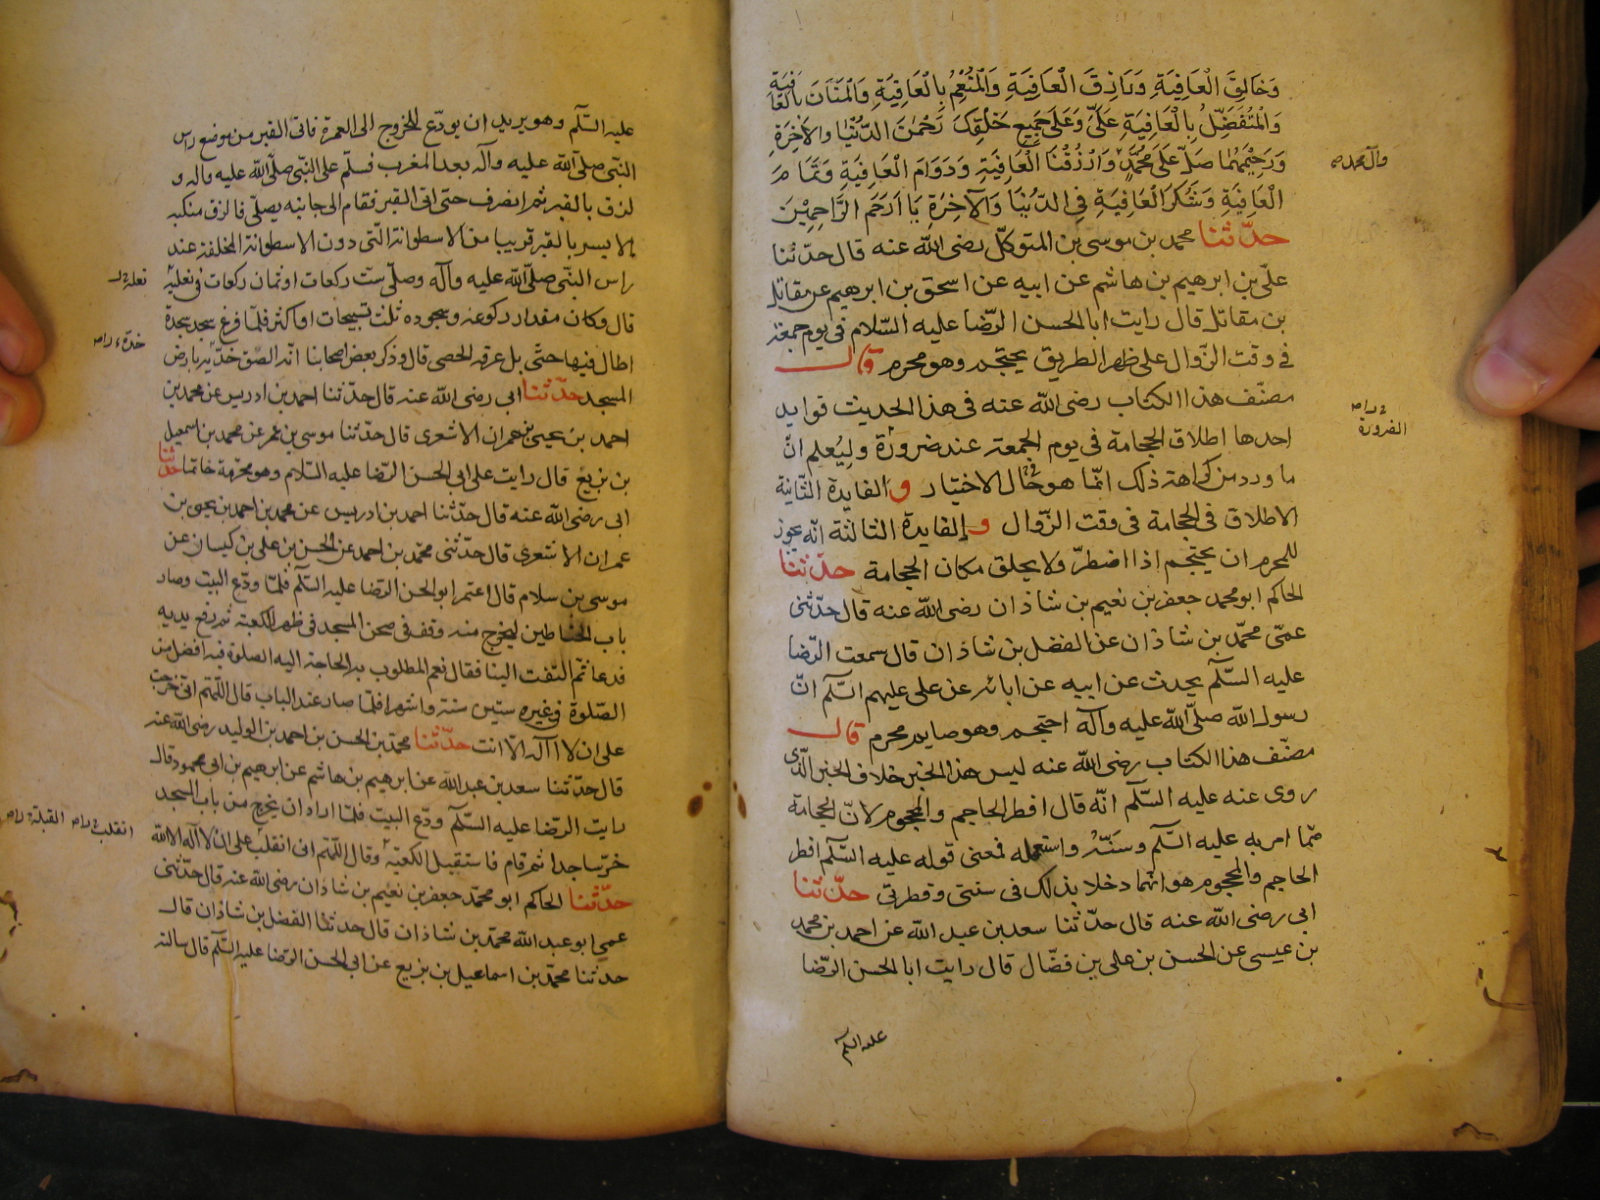 وَخَالِقَ الْعَافِيَةِ وَرَازِقَ الْعَافِيَةِ وَالْمُنْعِمُ بِالْعَافِيَةِ وَالْمَنَّانَ بِالْعَافِيَةِ
وَالْمُتَفَضِّلُ بِالْعَافِيَةِ عَلَىَّ وَعَلَى جَمِيعِ خَلْقِكَ رَحْمٰنَ الدُّنْيَا وَالآخِرَةِ
وَرَحِيْمَهُمَا صَلِّ عَلَى مُحَمَّدٍ وَارْزُقْنَا الْعَافِيَةِ وَدَوَامَ الْعَافِيَةِ وَتَمَامَ
وآل محمد صح
الْعَافِيَةِ وَشُكْرَ الْعَافِيَةِ فِى الدُّنْيَا وَالآخِرَةِ يَا اَرْحَمَ الرَّاحِمِيْنَ
حدّثنا محمد بن موسى بن المتوكّل رضى الله عنه قال حدّثنا
علىّ بن ابرهيم بن هاشم عن ابيه عن اسحق بن ابرهيم عن مقاتل
بن مقاتل قال رايت ابا الحسن الرّضا عليه السّلام فى يوم جمعة
فى وقت الزّوال على ظهر الطريق يحتجم وهو محرم قال
مصنّف هذا الكتاب رضى الله عنه فى هذا الحديث فوايد
احدها اطلاق الحجامة فى يوم الجمعة عند ضرورة وليُعلم انّ
الضرورة
ما ورد من كراهة ذلك انّما هو حال الاختيار و الفايدة الثّانية
الاطلاق فى الحجامة فى وقت الزّوال و الفايدة الثالثة انّه يجوز
للمحرم ان يحتجم اذا اضطرّ ولا يحلق مكان الحجامة حدّثنا
الحاكم ابو محمد جعفر بن نعيم بن شاذان رضى الله عنه قال حدّثنى
عمّى محمّد بن شاذان عن الفضل بن شاذان قال سمعت الرّضا
عليه السّلم يحدث عن ابيه عن ابائه عن على عليهم السّلم انّ
رسول الله صلّى الله عليه وآله احتجم وهو صايم محرم قال
مصنّف هذا الكتاب رضى الله عنه ليس هذا الخبر خلاف الخبر الّذى
روى عنه عليه السّلم انّه قال افطر الحاجم والمحجوم لانّ الحجامة
ممّا امر به عليه السّلم وسَنَّهُ واستعمله فمعنى قوله عليه السّلم افطر
الحاجم والمحجوم هو انهما دخلا بذلك فى سنتى وفطرتى حدّثنا
ابى رضى الله عنه قال حدّثنا سعد بن عبد الله عن احمد بن محمد
بن عيسى عن الحسن بن على بن فضّال قال رايت ابا الحسن الرّضا
عليه السلم
عليه السّلم وهو يريد ان يودّع للخروج الى العمرة فاتى القبر من موضع راس
النبّى صلى الله عليه وآله بعد المغرب فسلّم على النّبى صلّى الله عليه وآله و
لزق بالقبر ثم انصرف حتى اتى القبر فقام الى جانبه يصلّى فالزق منكبه
الايسر بالقبر قريبا من الاسطوانة الّتى دون الاسطوانة المخلفة عند
راس النّبى صلّى الله عليه وآله وصلّى ستّ ركعات او ثمان ركعات فى نعليه
قال وكان مقدار ركوعه وسجوده ثلث تسبيحات او اكثر فلمّا فرغ سجد سجدة
اطال فيها حتّى بل عرقه الحصى قال وذكر بعض اصحابنا انّه الصق خدّيه بارض
المسجد حدّثنا ابى رضى الله عنه قال حدّثنا احمد بن ادريس عن محمد بن
احمد بن يحيى بن عمران الاشعرى قال حدّثنا موسى بن عمر عن محمد بن اسمعيل
بن بزيع قال رايت على ابى الحسن الرّضا عليه السّلام وهو محرم خاتما حدثنا
ابى رضى الله عنه قال حدّثنا احمد بن ادريس عن محمد بن احمد بن يحيى بن
عمران الاشعرى قال حدّثنى محمّد بن احمد عن الحسن بن على بن كيسان عن
موسى بن سلام قال اعتمر ابو الحسن الرّضا عليه السّلم فلمّا ودّع البيت وصار
باب الحنّاطين ليخرج منه وقف فى صحن المسجد فى ظهر الكعبة ثم رفع يديه
فدعا ثم التفت الينا فقال نعم المطلوب به الحاجة اليه الصلوة فيه افضل من
الصّلوة فى غيره ستّين سنة واشهرا فلمّا صار عند الباب قال اللّهمّ انى خرجت
على ان لا آله الّا انت حدّثنا محمّد بن الحسن بن احمد بن الوليد رضى الله عنه
قال حدّثنا سعد بن عبد الله عن ابرهيم بن هاشم عن ابرهيم بن ابى محمود قال
رايت الرّضا عليه السّلم ودّع البيت فلمّا اراد ان يخرج من باب المسجد
خرّ ساجدا ثم قام فاستقبل الكعبة وقال اللّهمّ انى انقلب على ان لا آله الا الله
حدّثنا الحاكم ابو محمّد جعفر بن نعيم بن شاذان رضى الله عنه قال حدّثنى
عمى ابو عبد الله محمّد بن شاذان قال حدثنا الفضل بن شاذان قال
حدثنا محمّد بن اسماعيل بن بزيع عن ابى الحسن الرّضا عليه السّلم قال سالته